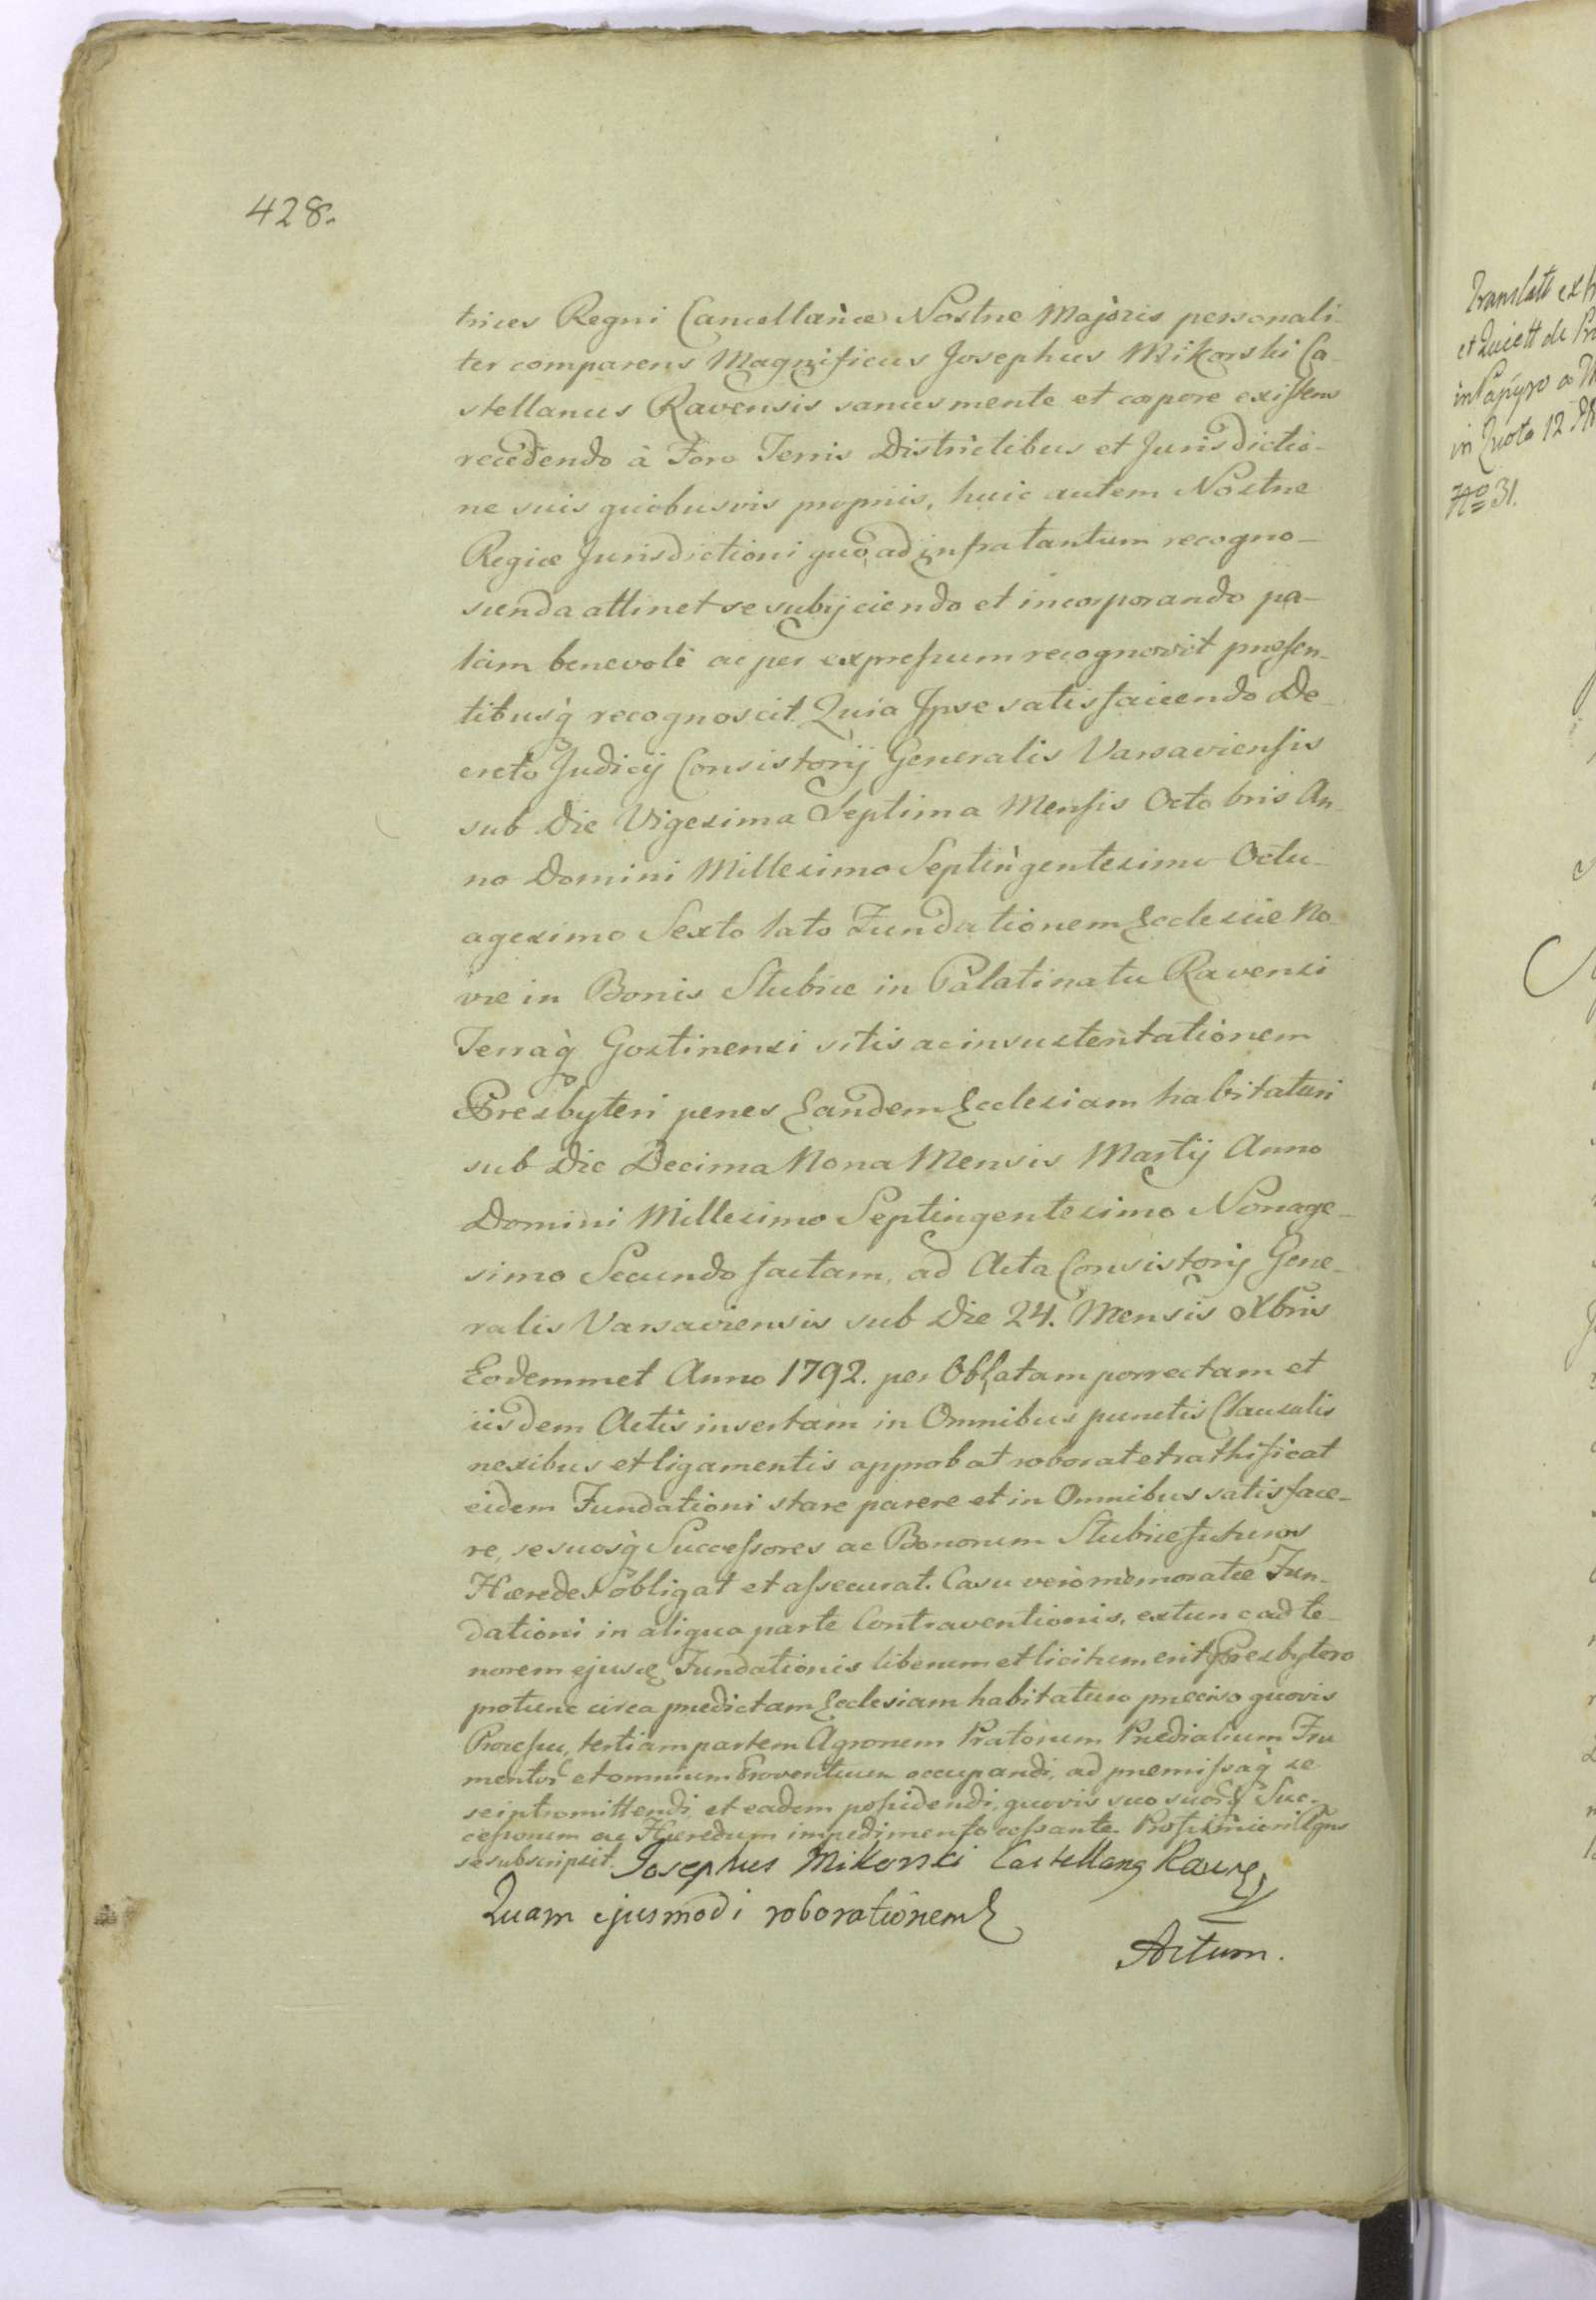 428.
trices Regni Cancellariæ Nostræ Majoris personali-
ter comparens Magnificus Josephus Mikorski Ca-
stellanus Ravensis sanus mente et corpore existens
recedendo à Foro Terris Districtibus et Jurisdictio-
ne suis quibusvis propriis, huic autem Nostræ
Regiæ Jurisdictioni quo ad infra tantum recogno-
scenda attinet se subijciendo et incorporando pa-
làm benevolè ac per expressum recognovit præsen-
tibusq̀ recognoscit Quia Ipse satisfaciendo De-
creto Judicij Consistorij Generalis Varsaviensis
sub Die Vigesima Septima Mensis Octobris An-
no Domini Millesimo Septingentesimo Octu-
agesimo Sexto lato Fundationem Ecclesiæ No-
væ in Bonis Slubice in Palatinatu Ravensi
Terraq̀ Gostinensi sitis ac in sustentationem
Presbyteri penes Eandem Ecclesiam habitaturi
sub Die Decima Nona Mensis Martij Anno
Domini Millesimo Septingentesimo Nonage-
simo Secundo factam, ad Acta Consistorij Gene-
ralis Varsaviensis sub Die 24. Mensis Xbris
Eodemmet Anno 1792. per Oblatam porrectam et
iisdem Actis insertam in Omnibus punctis Clausulis
nexibus et ligamentis approbat roborat et rathificat
eidem Fundationi stare parere et in Omnibus satisface-
re, se suosq̀ Successores ac Bonorum Slubice futuros
Hæredes obligat et assecurat. Casu verò memoratæ Fun-
dationi in aliqua parte Contraventionis, extunc ad te-
norem ejusd Fundationis liberum et licitum erit Presbytero
protunc circa prædictam Ecclesiam habitaturo præciso quovis
Processu, tertiam partem Agrorum Pratorum Prædialium Fru
mentor et omnium Proventuum occupandi, ad præmissaq̀ se
se intromittendi et eadem possidendi, quovis suo suorq̀ Suc-
cessorum ac Hæredum impedimento cessante.
se subscripsit. Josephus Mikorski Castellang Raws
Quam ejusmodi roborationem
Actum.
Translatt
et Quiett de
in Papyro a
in Quota 12
No 31.